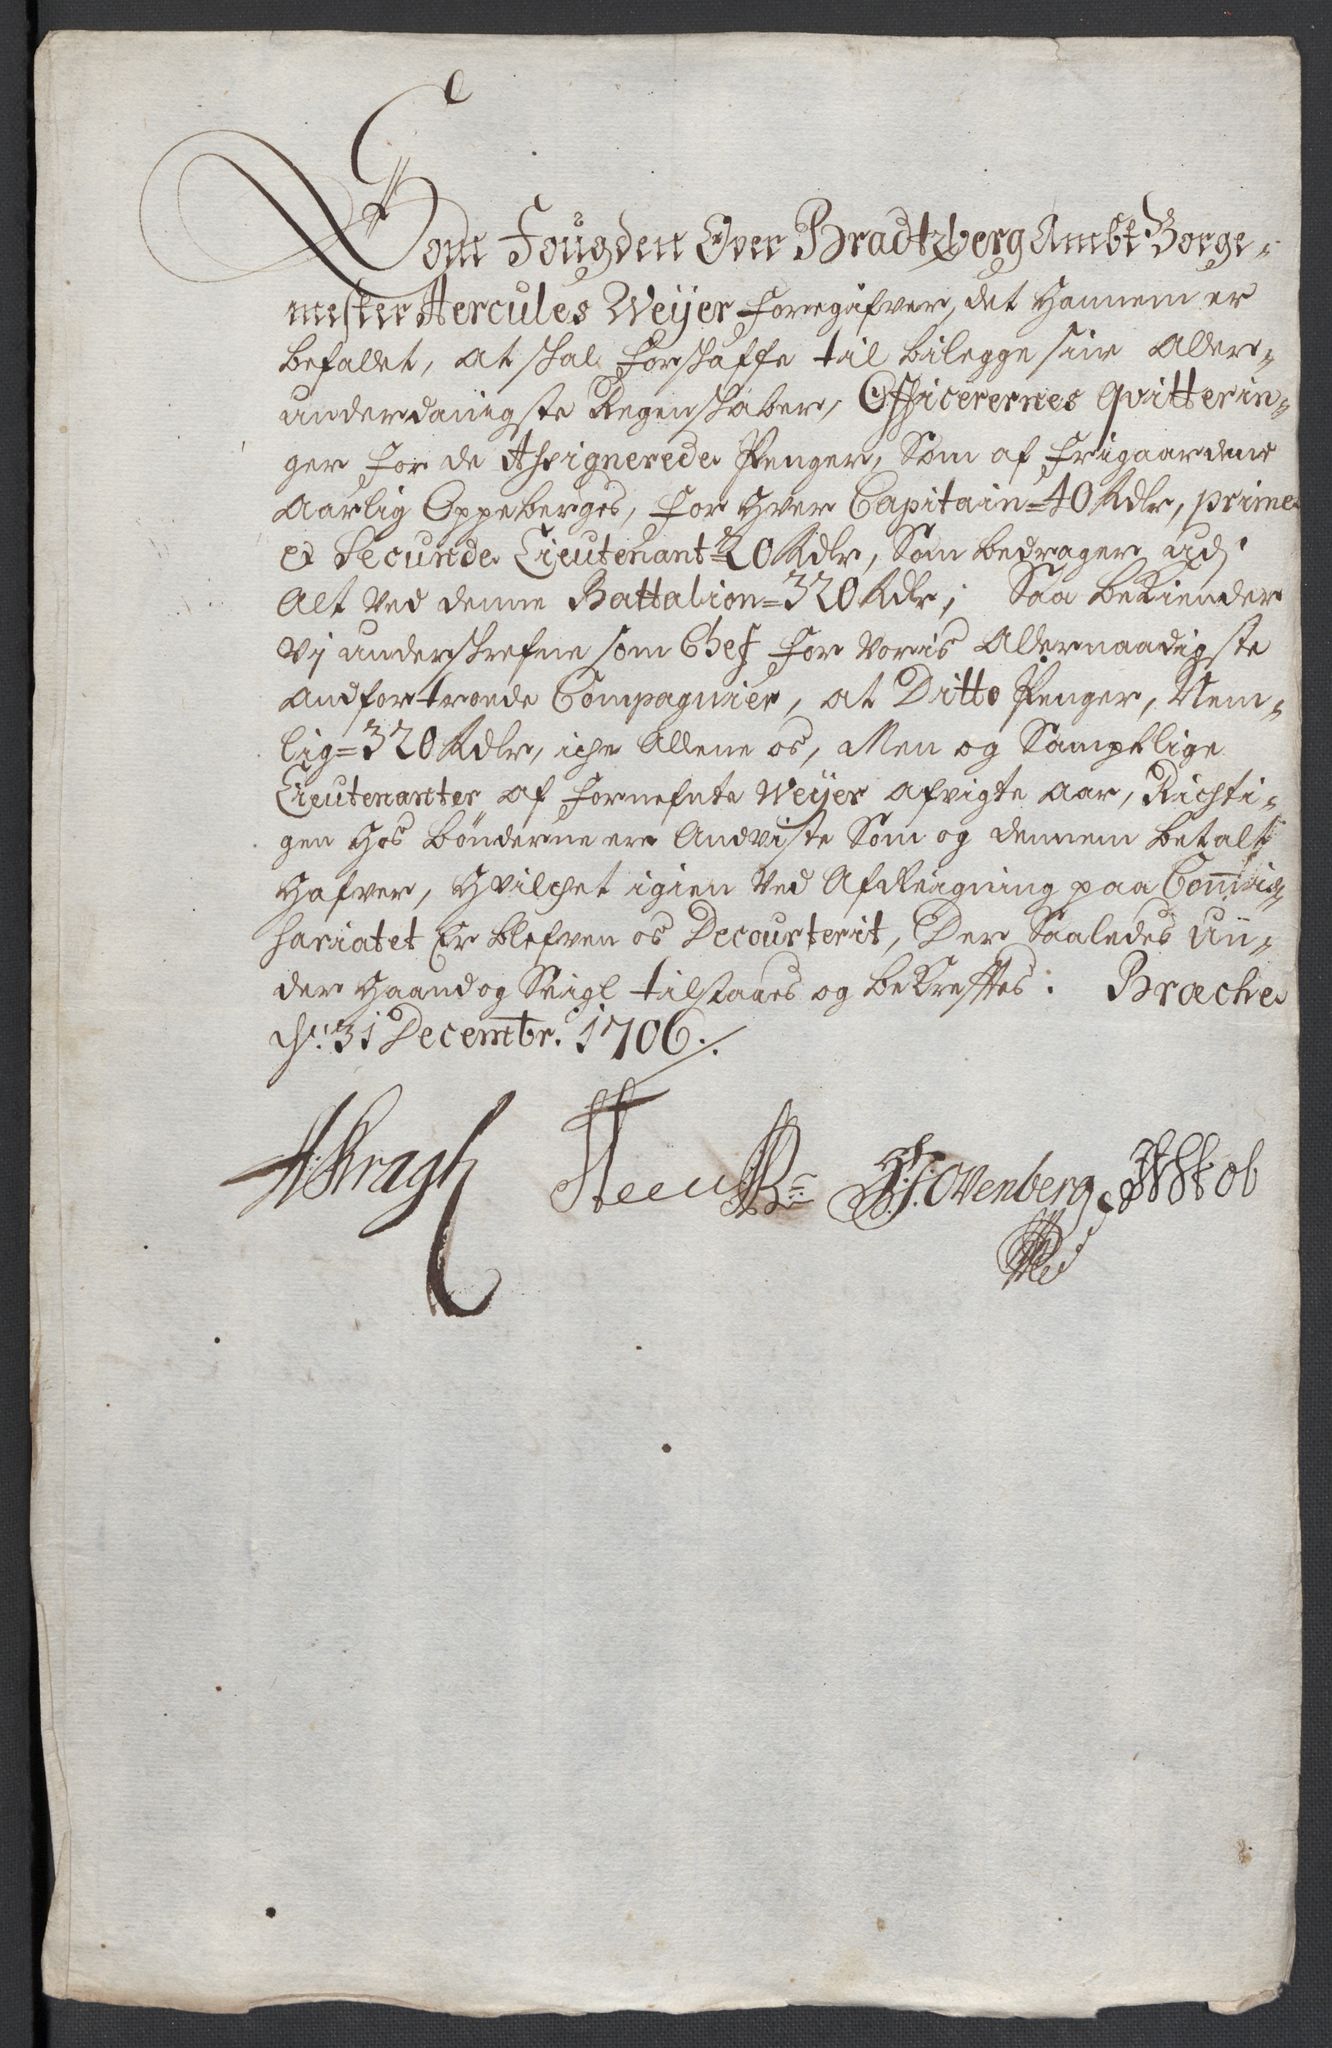 Som Fougden Over Bradtzberg Ambt Borge-
mester Hercules Weijer foregifver, det hannem er
befalet, at skal forskaffe til bilegge sine Aller-
underdanigste Regenskaber, Officerernes Qvitterin-
ger for de Assignerede Penger, som af frigaardene
Aarlig Oppeberges, for hver Capitain=40 Rdlr, prime
et Secunde Lieutenant=20 Rdlr, som bedrager udj
Alt Ved denne Battalion=320 Rdlr; Saa beKiender
Vj underskrefne som Chef for Voris Allernaadigste
Andfortroede Compagnier, at Ditto Penger, Nem-
lig=320 Rdlr, iche Allene os, Men og Samptlige
Lieutenanter af fornefnte Weijer afvigte Aar, Richti-
gen hos bønderne ere Andviste Som og dennem betalt
hafver, hvilchet igien Ved Afreigning paa Commis-
sariatet Er blefven os Decourterit, Der Saaledes Un-
der haand og Seigl tilstaaes og beKrefftes: Bræche
d: 31 Decembr. 1706.
H: Kragh Steen B: H: F: Ovenberg